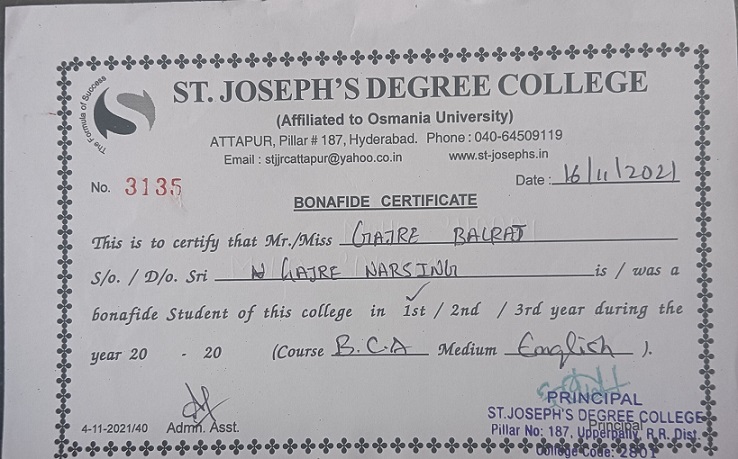 The Formula of Success
ST. JOSEPH'S DEGREE COLLEGE
(Affiliated to Osmania University)
ATTAPUR, Pillar # 187, Hyderabad. Phone : 040-64509119
Email : stjjrcattapur@yahoo.co.in www.st-josephs.in
No. 3135 Date : 16/11/2021
BONAFIDE CERTIFICATE
This is to certify that Mr./Miss GAJRE BALRAJ
S/o. / D/o. Sri N GAJRE NARSING is / was a
bonafide Student of this college in 1st / 2nd / 3rd year during the
year 20 - 20 (Course B.C.A Medium English ).
PRINCIPAL
ST.JOSEPH'S DEGREE COLLEGE
4-11-2021/40 Admn. Asst. Principal
Pillar No: 187, Upperpally, R.R. Dist.
College Code: 2801